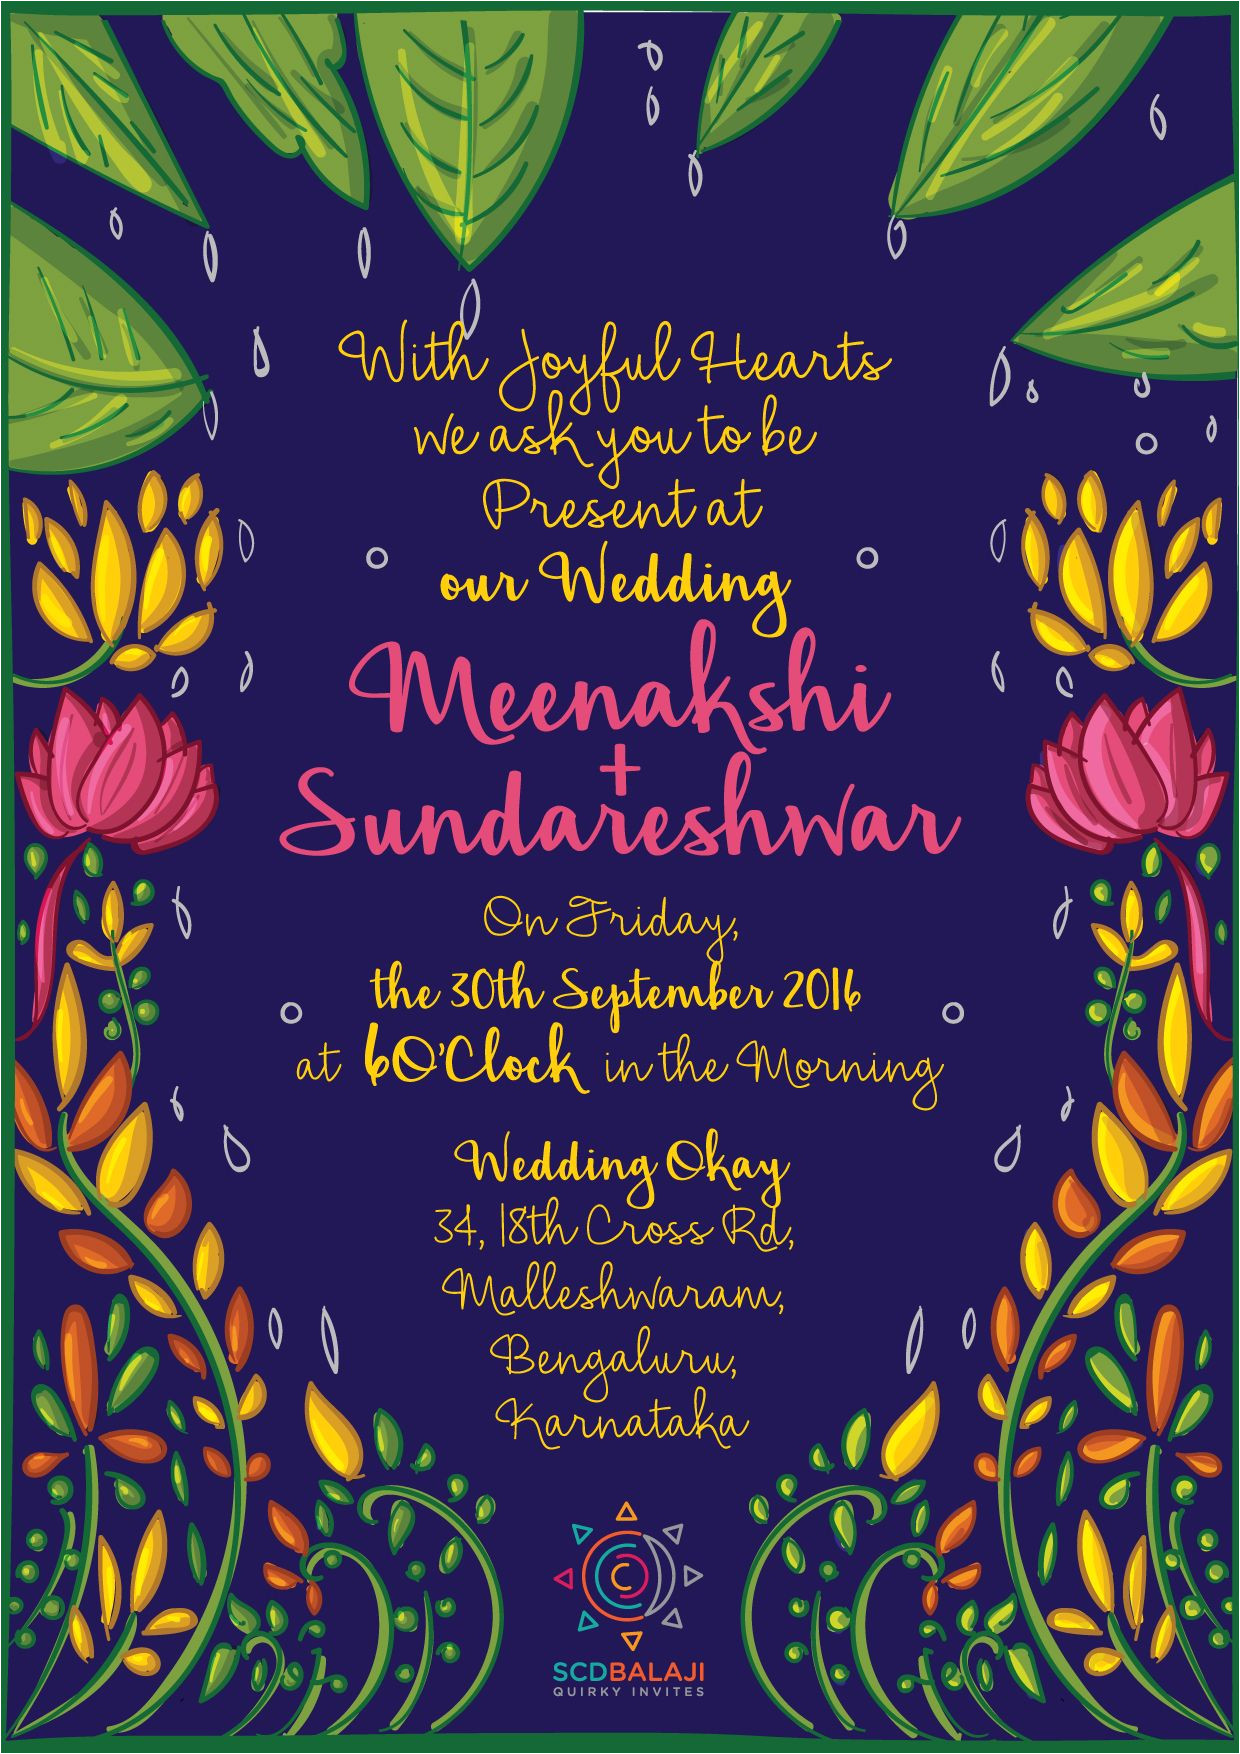 With Joyful Hearts
we ask you to be
Present at
our Wedding
Meenakshi
+
Sundareshwar
On Friday,
the 30th September 2016
at 6O'Clock in the Morning
Wedding Okay
34, 18th Cross Rd,
Malleshwaram,
Bengaluru,
Karnataka
SCDBALAJI
QUIRKY INVITES